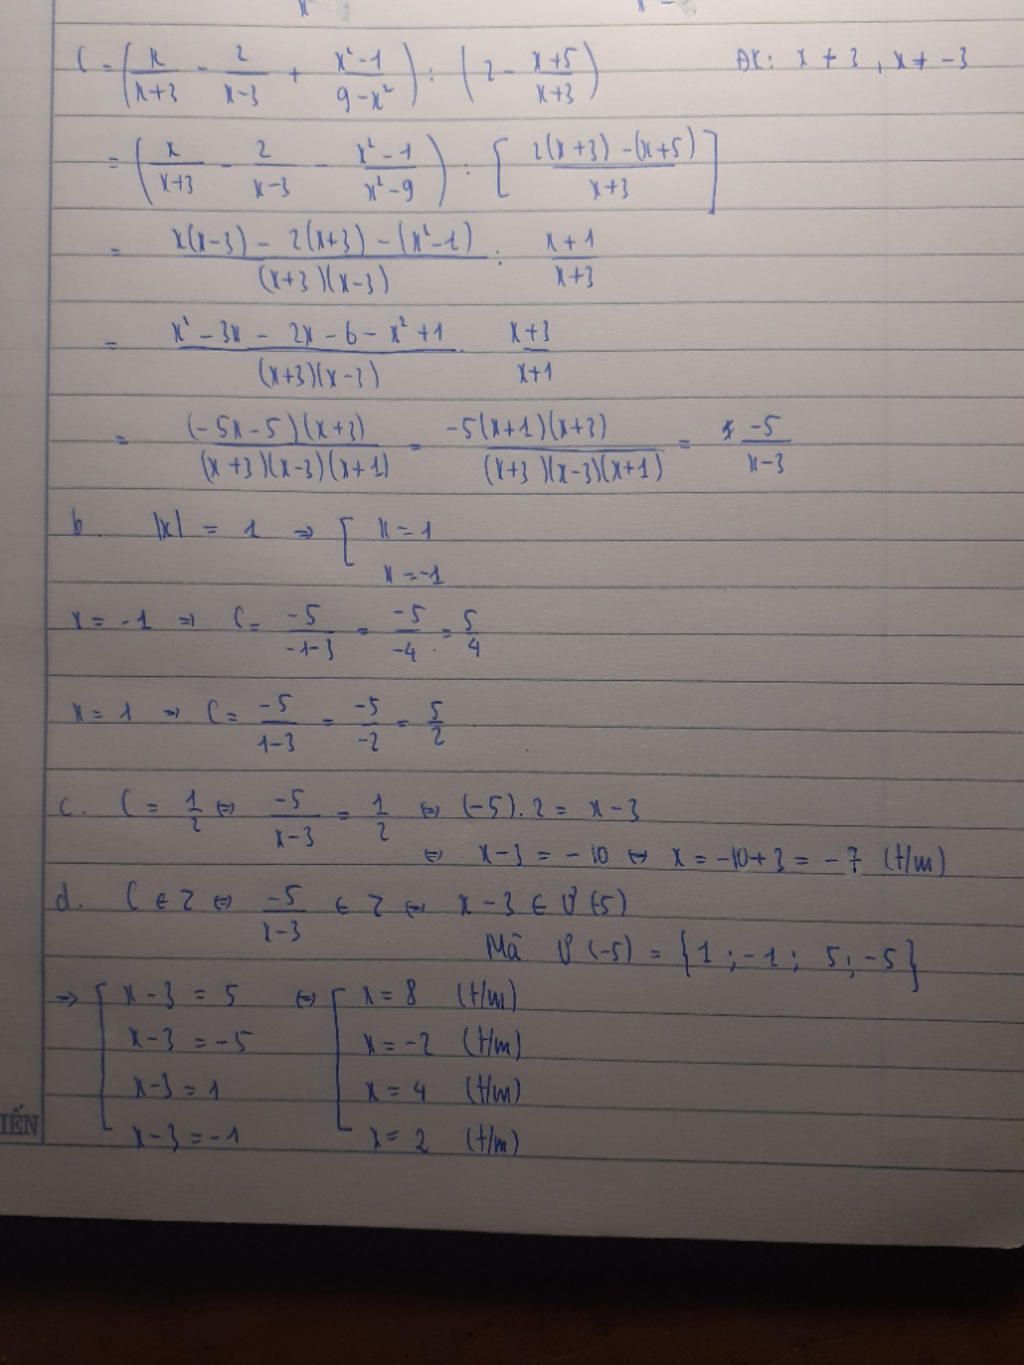 C = (x/(x+3) - 2/(x-3) + (x²-1)/(9-x²)) : (2 - (x+5)/(x+3)) ĐK: x ≠ 3, x ≠ -3
= (x/(x+3) - 2/(x-3) - (x²-1)/(x²-9)) : [(2(x+3) - (x+5))/(x+3)]
= (x(x-3) - 2(x+3) - (x²-1))/((x+3)(x-3)) : (x+1)/(x+3)
= (x² - 3x - 2x - 6 - x² + 1)/((x+3)(x-3)) . (x+3)/(x+1)
= ((-5x-5)(x+3))/((x+3)(x-3)(x+1)) = (-5(x+1)(x+3))/((x+3)(x-3)(x+1)) = -5/(x-3)
b. |x| = 1 ⇒ [ x = 1
x = -1
x = -1 ⇒ C = -5/(-1-3) = -5/-4 = 5/4
x = 1 ⇒ C = -5/(1-3) = -5/-2 = 5/2
c. C = 1/2 ⇔ -5/(x-3) = 1/2 ⇔ (-5).2 = x-3
⇔ x-3 = -10 ⇔ x = -10+3 = -7 (t/m)
d. C ∈ Z ⇔ -5/(x-3) ∈ Z ⇔ x-3 ∈ Ư(-5)
Mà Ư(-5) = {1; -1; 5; -5}
⇒ [ x-3 = 5 ⇔ [ x = 8 (t/m)
x-3 = -5 x = -2 (t/m)
x-3 = 1 x = 4 (t/m)
x-3 = -1 x = 2 (t/m)
IẾN